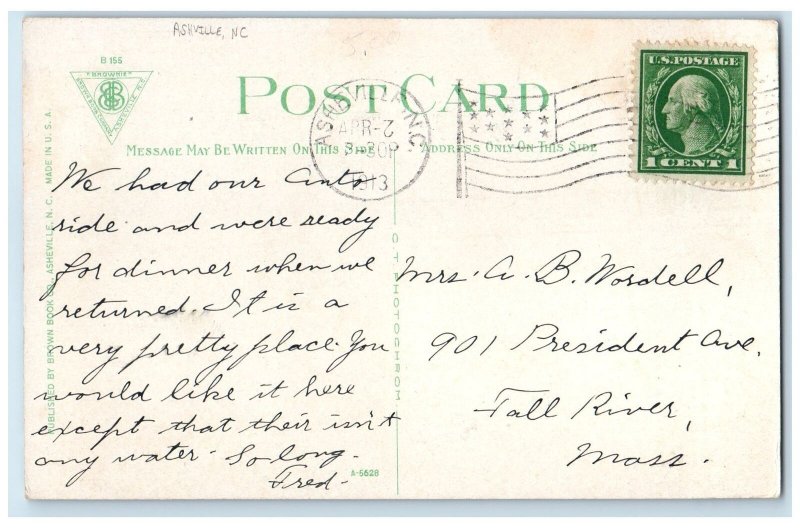 ASHVILLE, NC
B 155
"BROWNIE"
POST CARD
ASHEVILLE, N.C.
APR-2
3-30P
1913
U.S. POSTAGE
1 CENT 1
MESSAGE MAY BE WRITTEN ON THIS SIDE
ADDRESS ONLY ON THIS SIDE
We had our Auto
ride and were ready
for dinner when we
returned. It is a
very pretty place. You
would like it here
except that their isn't
any water. So long.
Fred.
Mrs. A. B. Wordell,
901 President Ave.
Fall River,
Mass.
PUBLISHED BY BROWN BOOK CO., ASHEVILLE, N. C. MADE IN U. S. A.
C T PHOTOCHROM
A-5628